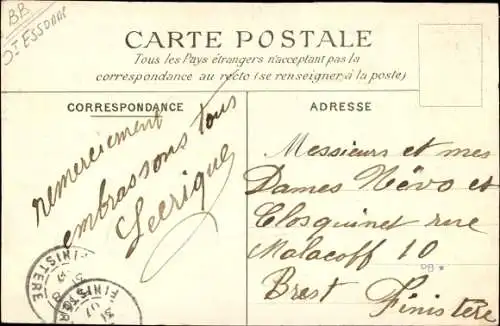 BB
St ESSONNE
CARTE POSTALE
Tous les Pays étrangers n'acceptant pas la
correspondance au recto (se renseigner à la poste)
CORRESPONDANCE
ADRESSE
remerciement
embrassons tous
Messieurs et mes
Dames Névo et
Closquinet rue
Malacoff 10
Brest Finistère
FINISTERE
FINISTERE